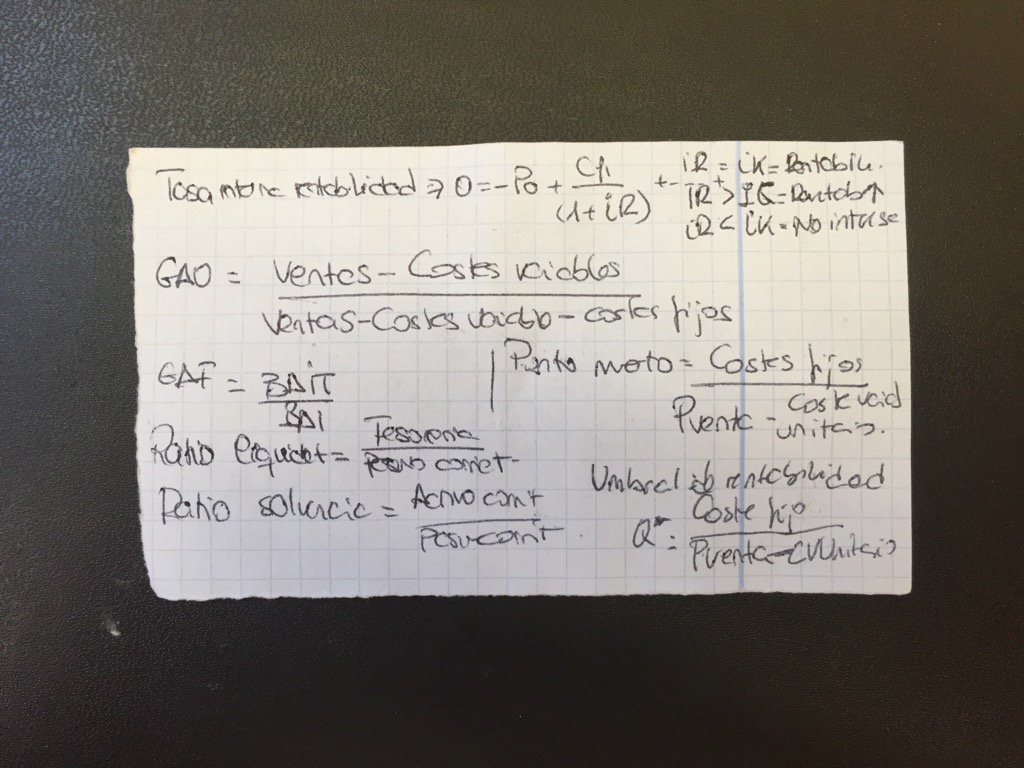 Tasa interna rentabilidad => 0 = -Po + Cf1 / (1+iR) + - +
iR = iK = Rentabili.
iR > iK = Rentab↑
iR < iK = No interese
GAO = Ventas - Costes variables / Ventas - Costes variable - costes fijos
GAF = BAIT / BAI
Punto muerto = Costes fijos / Pventa - Coste variab unitario.
Ratio liquidet = Tesoreria / Pasivo corriet
Ratio solvencia = Activo corrint / Pasivo corrint
Umbral de rentabilidad
Q* = Coste fijo / Pventa - CVUnitario